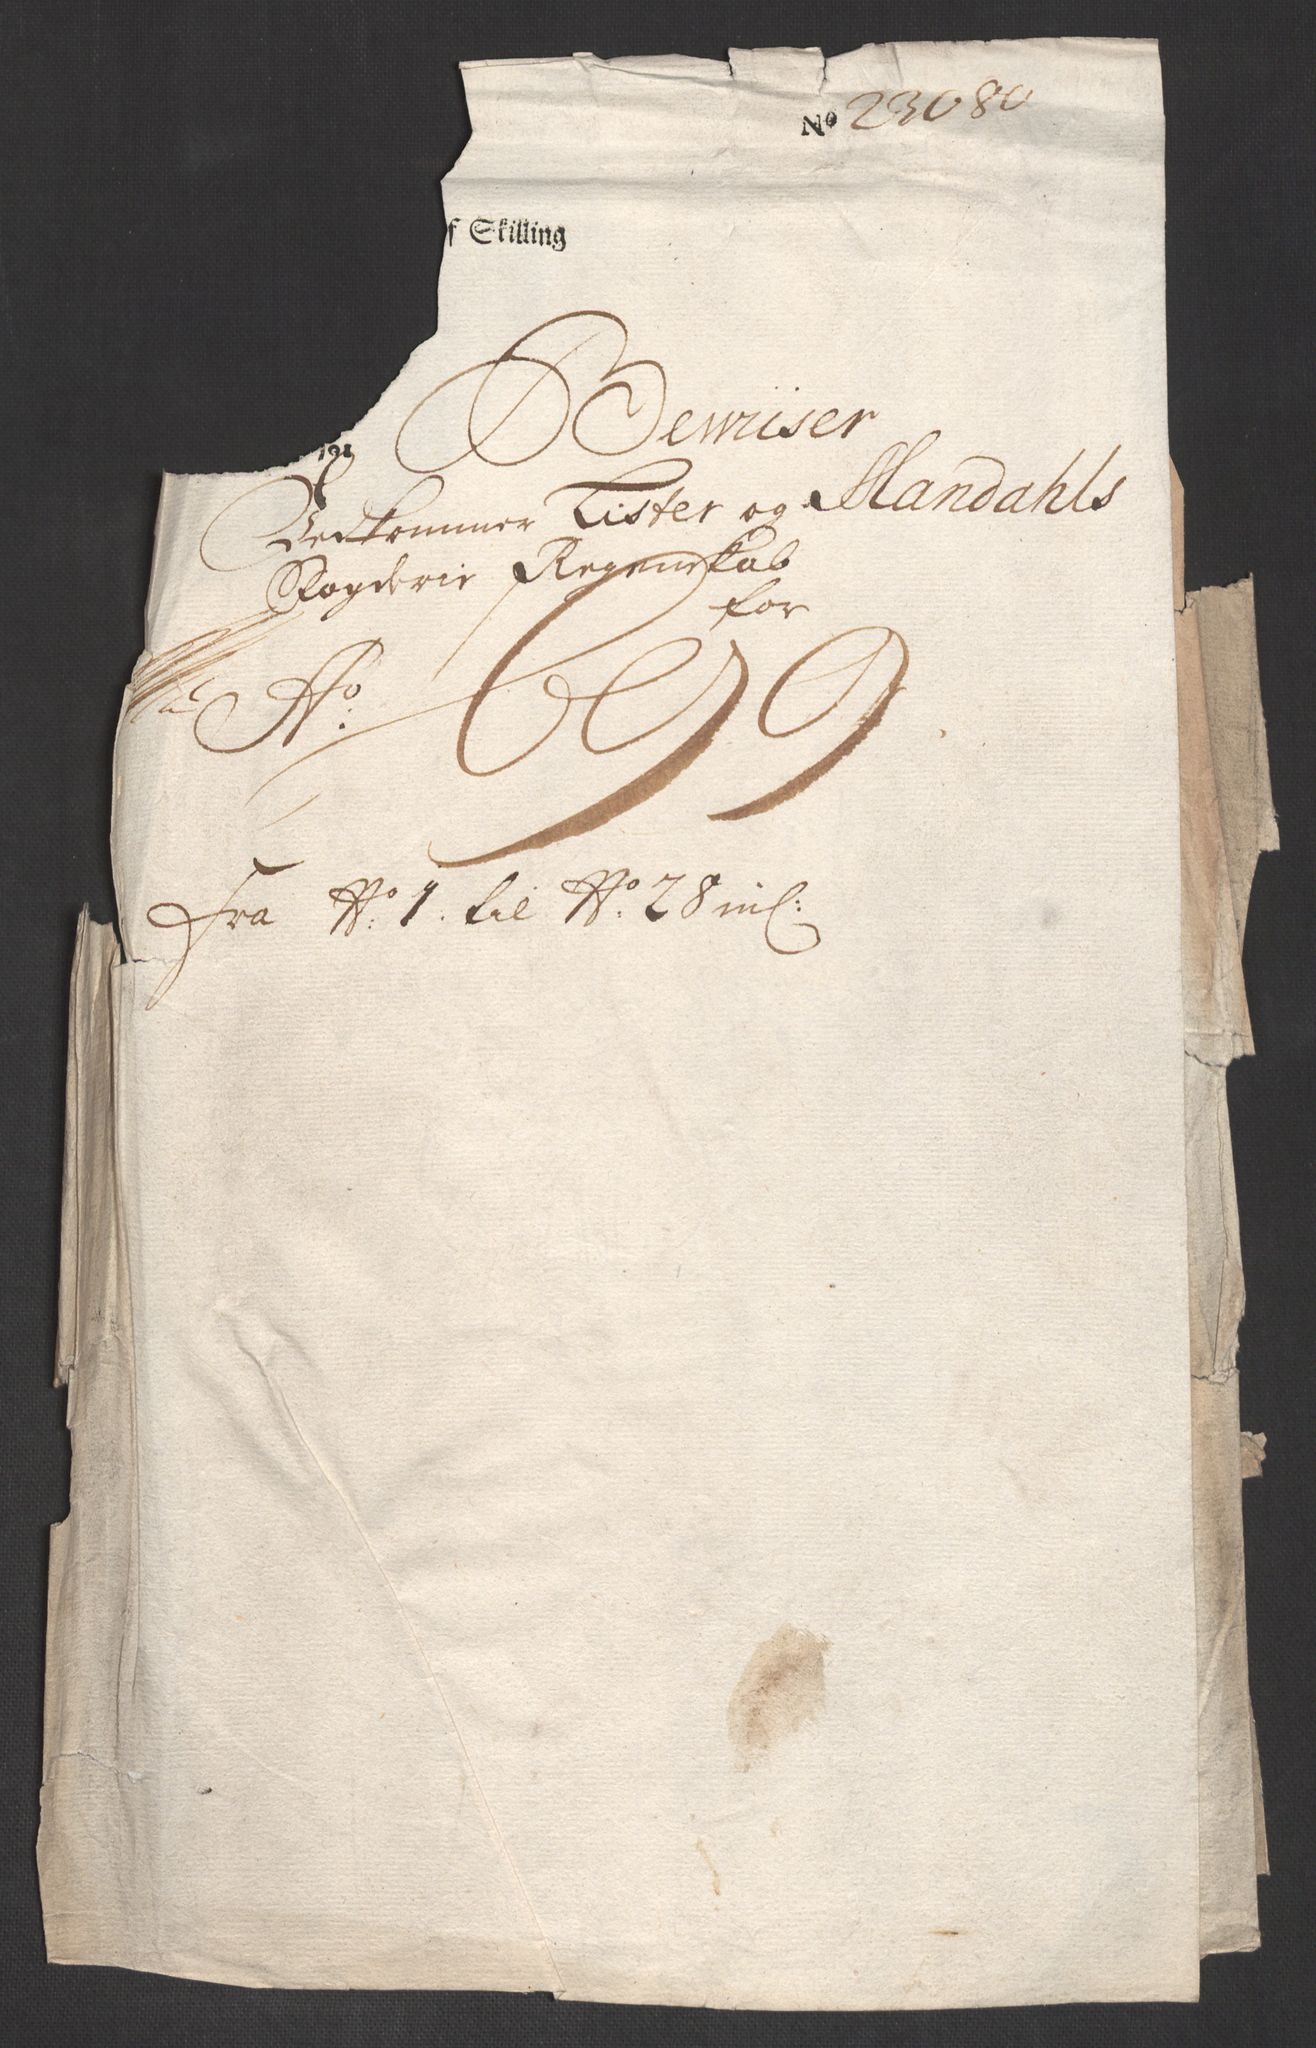 No 23080
f Skilling
Bewiiser
Vedkommer Lister og Mandahls
Fogderie Regenskab
for
Ao. 699
Fra No. 1. til No. 28 incl: